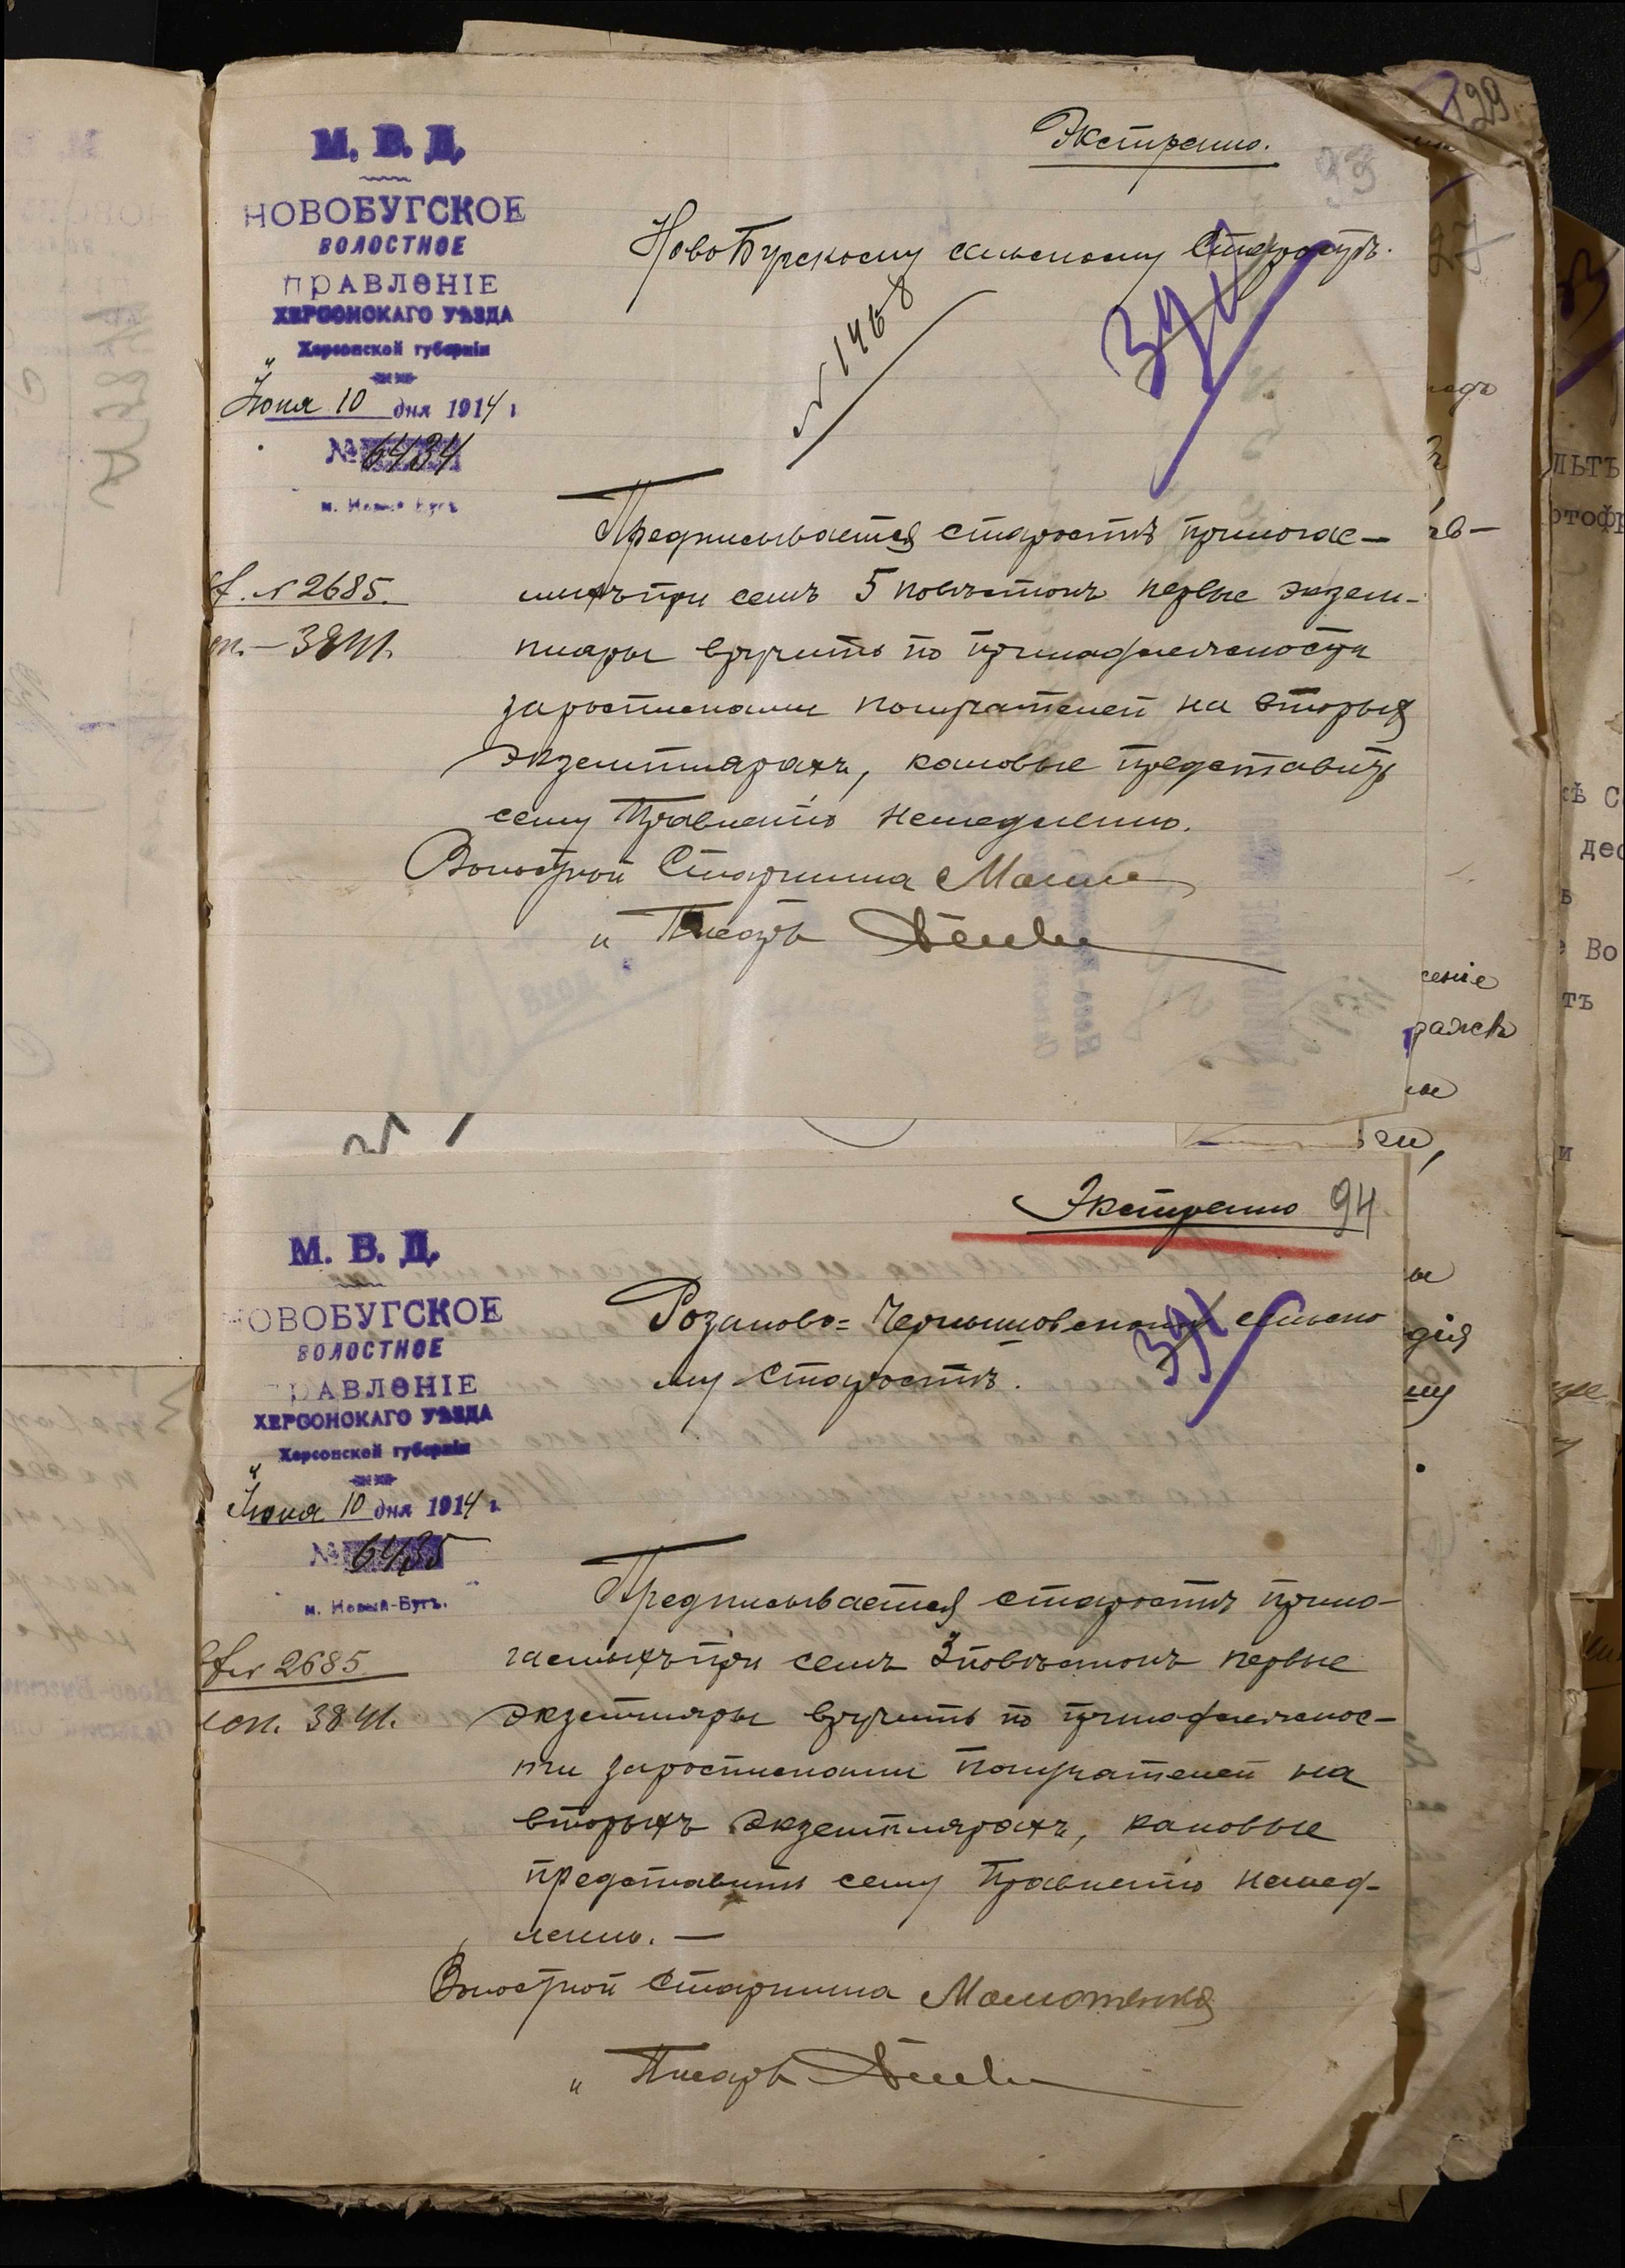 129
М. В. Д.
НОВОБУГСКОЕ
ВОЛОСТНОЕ
ПРАВЛѲНІЕ
ХЕРСОНСКАГО УѢЗДА
Херсонской губерніи
„ Іюня 10 дня 1914 г.
№ 6434
м. Новый Бугъ
Экстренно.
93
НовоБугскому сельскому Старостѣ.
№ 1468
Предписывается старостѣ прилогае-
мыхъ при семъ 5 повѣстокъ первые экзем-
№ 2685.
пляры вручить по принадлежности
38 41.
заросписками получателей на вторыя
экземплярахъ, каковые представить
сему Правленію немедленно.
Волостной Старшина
„ Писарь
Экстренно 94
М. В. Д.
НОВОБУГСКОЕ
ВОЛОСТНОЕ
РАВЛѲНІЕ
ХЕРСОНСКАГО УѢЗДА
Херсонской губерніи
„ Іюня 10 дня 1914 г.
№ 6435
м. Новый-Бугъ.
Розаново= сельско
му Старостѣ.
391
Предписывается старостѣ прило-
гаемыхъ при семъ 3 повѣстокъ первые
№ 2685
экземпляры вручить по принадлежнос-
38 41.
ти заросписками получателей на
вторыхъ экземплярахъ, каковые
представить сему Правленію немед-
ленно. —
Волостной Старшина
„ Писарь